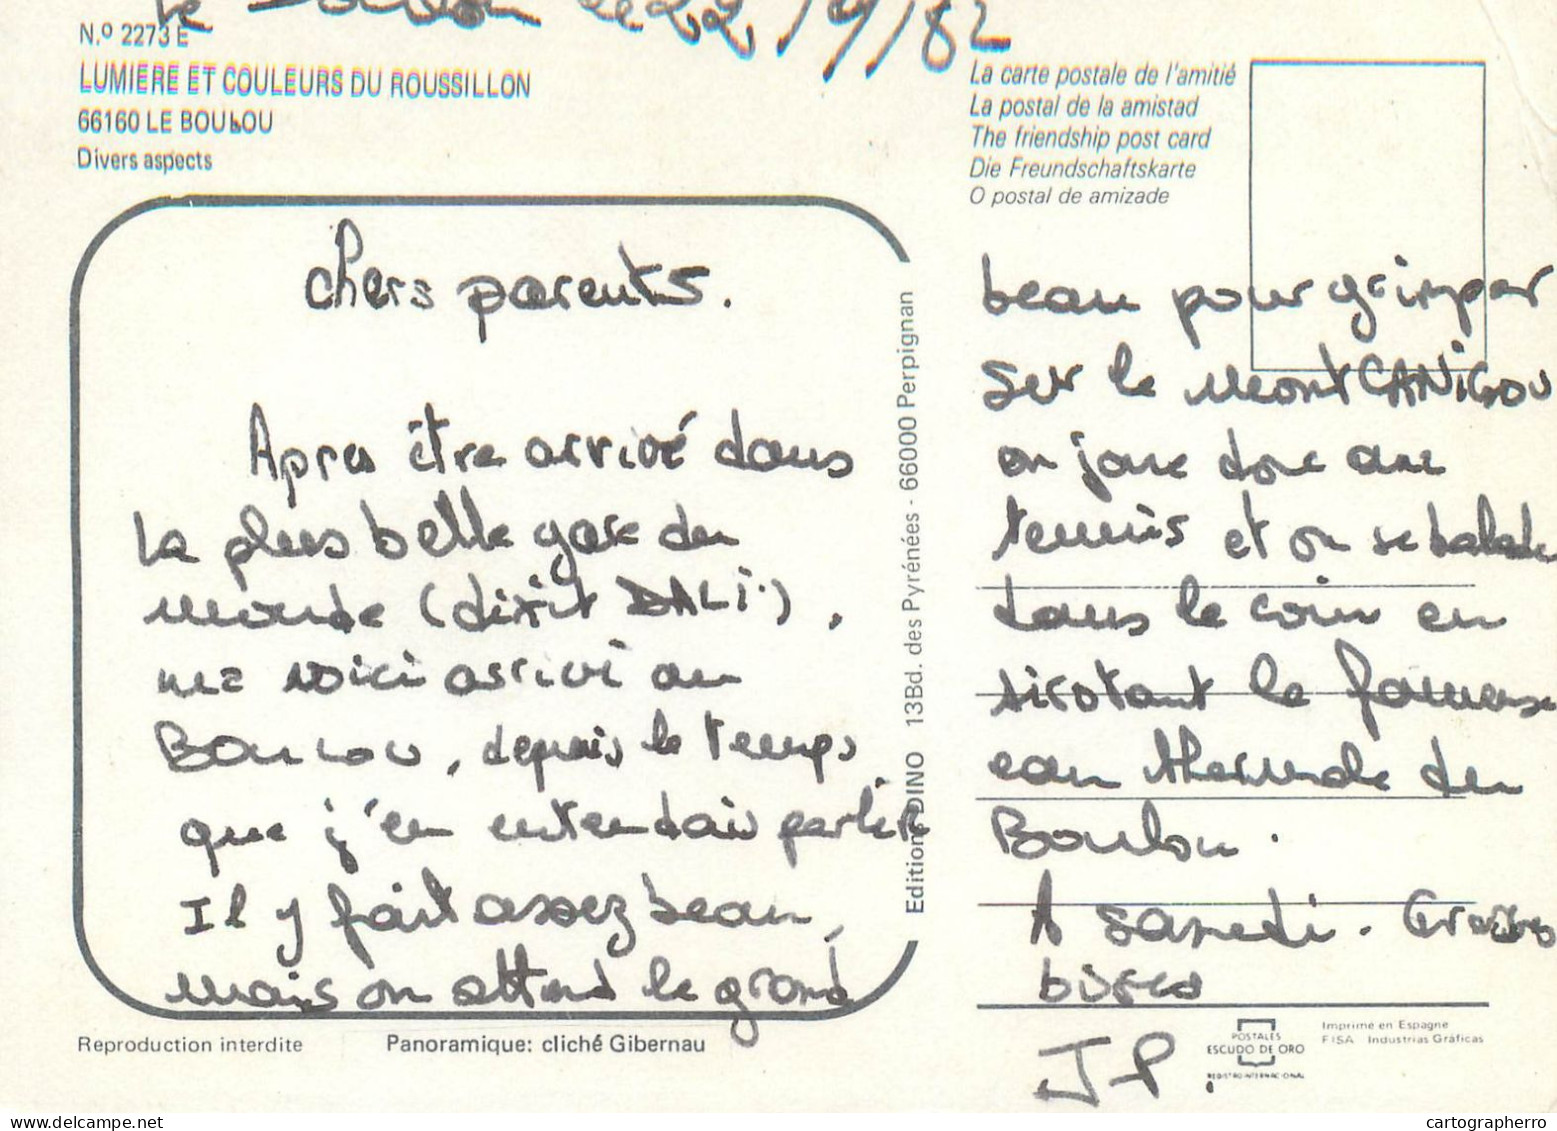 Le Boulou le 22/9/82
N.º 2273 E
LUMIERE ET COULEURS DU ROUSSILLON
66160 LE BOULOU
Divers aspects
La carte postale de l'amitié
La postal de la amistad
The friendship post card
Die Freundschaftskarte
O postal de amizade
chers parents.
Apres être arrivé dans
la plus belle gare du
monde (dixit DALI).
me voici arrivé au
BOULOU, depuis le temps
que j'en entendais parler
Il y fait assez beau,
mais on attend le grand
beau pour grimper
sur le mont CANIGOU
on joue donc au
tennis et on se balade
dans le coin en
sirotant la fameuse
eau thermale du
Boulou.
A samedi. Grosses
bises
J.P.
Edition DINO 13Bd. des Pyrénées - 66000 Perpignan
Reproduction interdite
Panoramique: cliché Gibernau
POSTALES
ESCUDO DE ORO
REGISTRO INTERNACIONAL
Imprimé en Espagne
FISA Industrias Gráficas
cartographerro